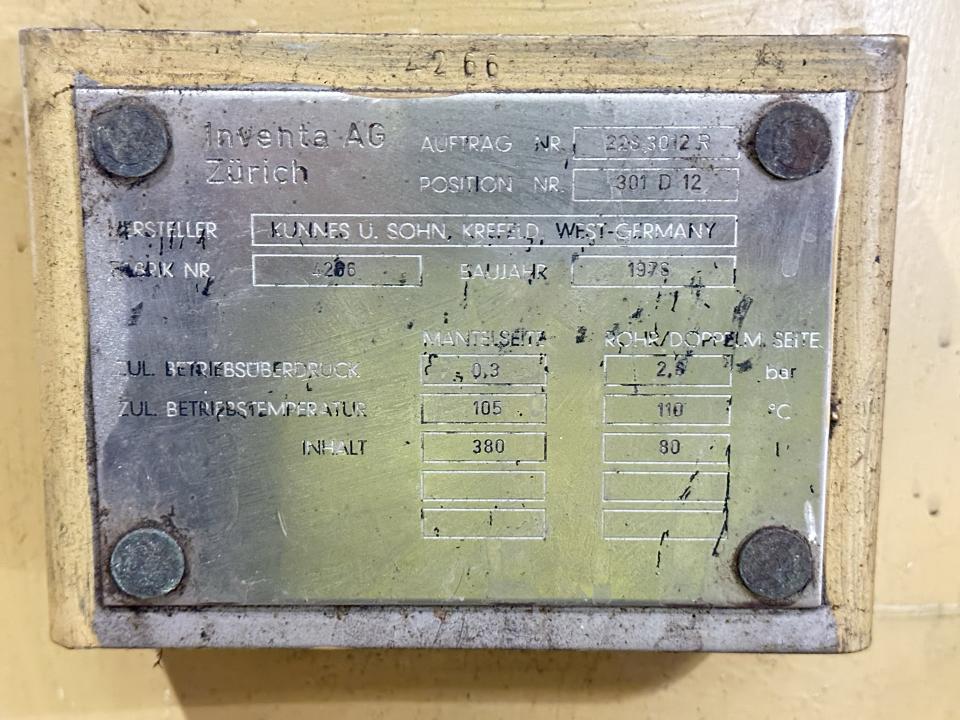 4266
Inventa AG
Zürich
AUFTRAG NR. 228.3012 R
POSITION NR. 301 D 12
HERSTELLER KUNNES U. SOHN, KREFELD, WEST-GERMANY
FABRIK NR. 4266
BAUJAHR 1978
MANTELSEITE ROHR/DOPPELM. SEITE
ZUL. BETRIEBSÜBERDRUCK 0,3 bar
ZUL. BETRIEBSTEMPERATUR 105 110 °C
INHALT 380 80 l